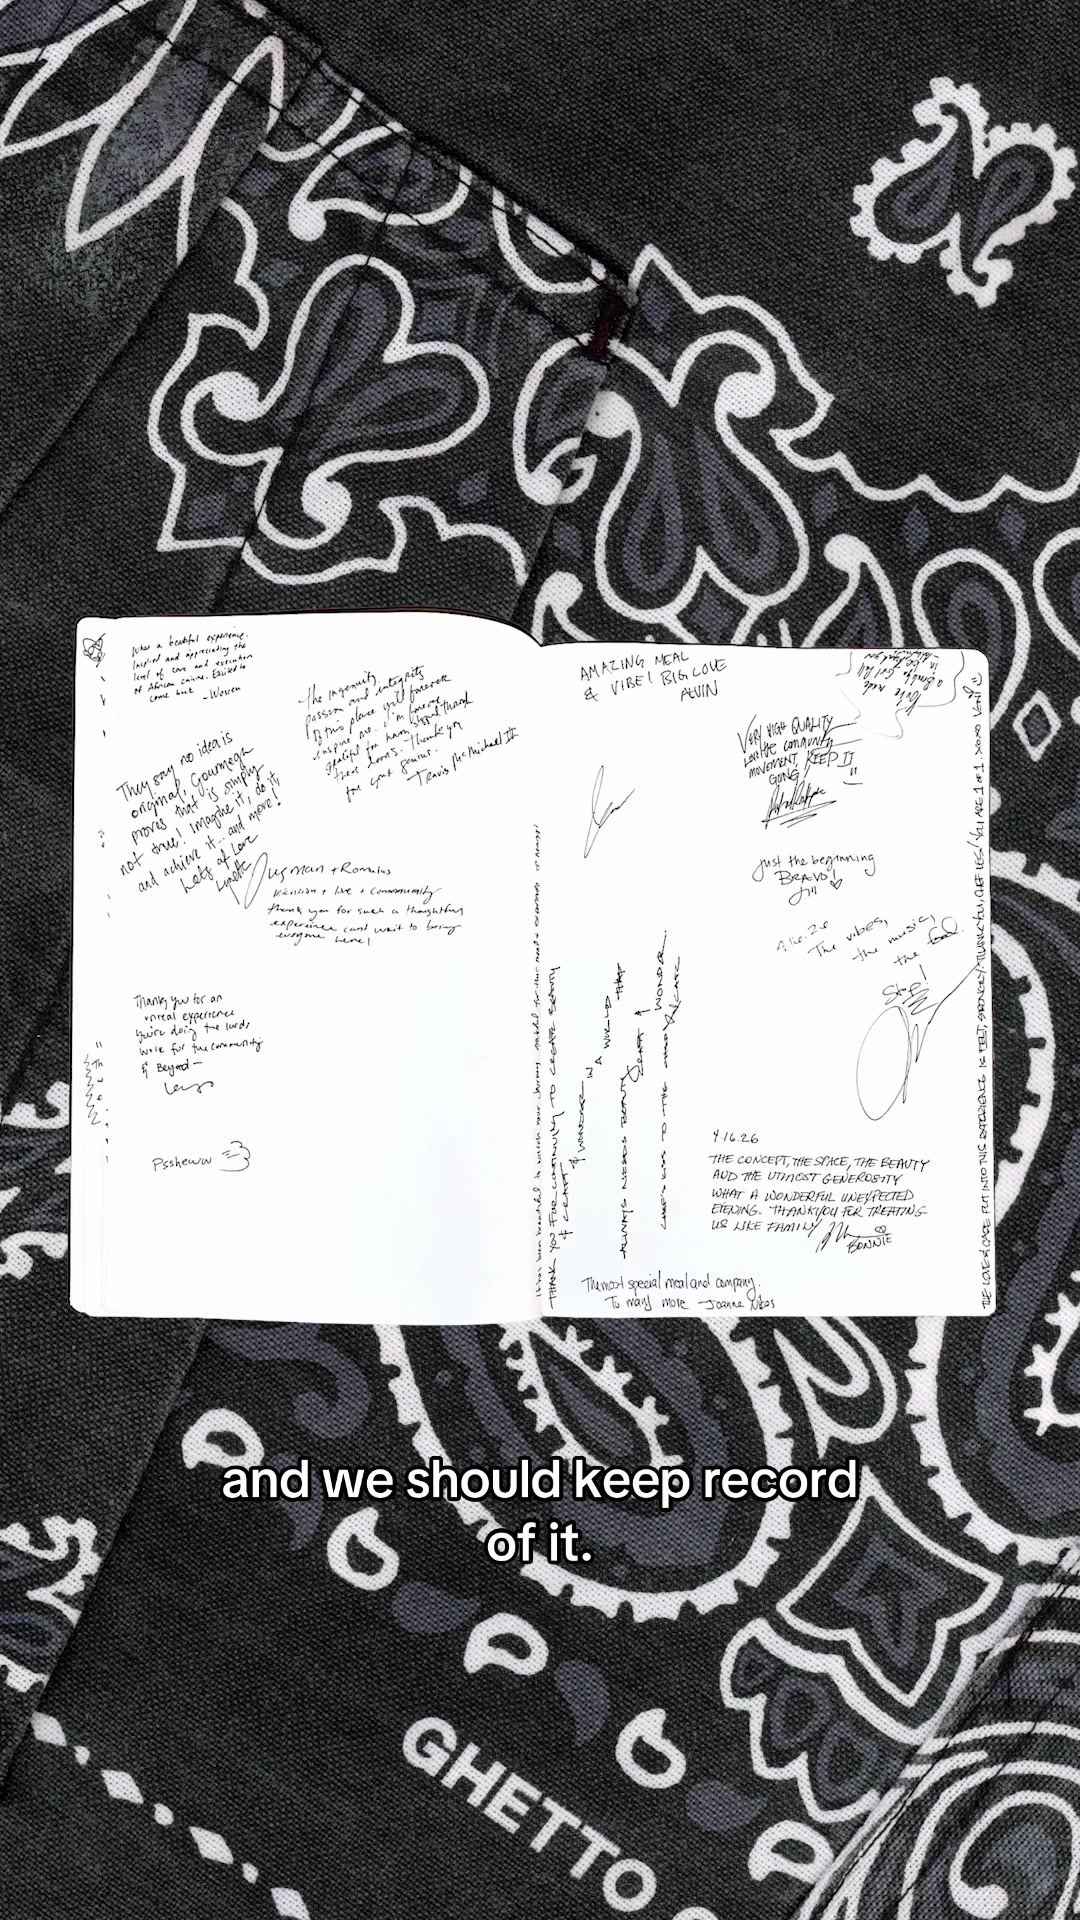 What a beautiful experience.
Inspired and appreciating the
level of care and execution
of African cuisine. Excited to
come back
The ingenuity,
passion and integrity
of this place will forever
inspire me. I'm forever
grateful to have stepped through
these doors. Thank you
for your genius.
Travis McMichael III
They say no idea is
original, Gourmega
proves that is simply
not true! Imagine it, do it,
and achieve it... and more!
Lots of Love
Lynette
+ Romulus
Intention + love + community
thank you for such a thoughtful
experience cant wait to bring
everyone here!
Thank you for an
unreal experience
you're doing the lords
work for the community
& Beyond —
Pssheww
AMAZING MEAL
& VIBE! BIG LOVE
ALVIN
VERY HIGH QUALITY
LOVE the community
MOVEMENT, KEEP IT
GOING!
Just the beginning
BRAVO!
Jill
4.16.26
The vibes,
the music,
the food
4.16.26
THE CONCEPT, THE SPACE, THE BEAUTY
AND THE UTMOST GENEROSITY
WHAT A WONDERFUL UNEXPECTED
EVENING. THANK YOU FOR TREATING
US LIKE FAMILY
BONNIE
The most special meal and company.
To many more - Joanne
THANK YOU FOR CONTINUING TO CREATE BEAUTY
& CRAFT & WONDER IN A WORLD THAT
ALWAYS NEEDS BEAUTY, CRAFT & WONDER.
CHEF'S KISS TO THE CHEF
THE LOVE & CARE PUT INTO THIS EXPERIENCE IS FELT, STRONGLY. THANK YOU, CHEF YES! YOU ARE 1 OF 1. XOXO
and we should keep record
of it.
GHETTO